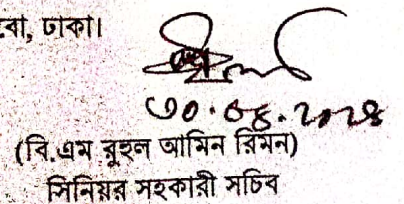 বো, ঢাকা।
৩০.০৪.২০২৪
(বি.এম রুহুল আমিন রিমন)
সিনিয়র সহকারী সচিব